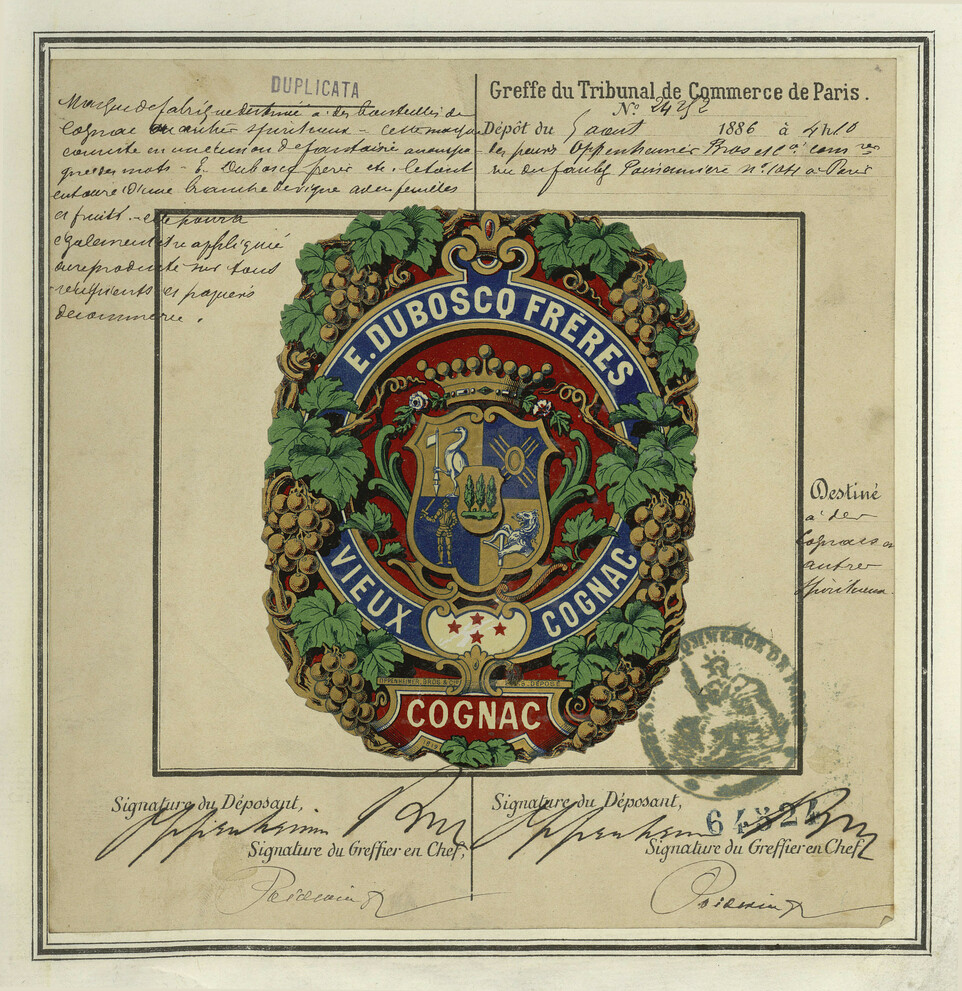 DUPLICATA
Marque de fabrique destinée à des bouteilles de
cognac ou autres spiritueux - cette marque
consiste en un écusson de fantaisie accompa
gné des mots - E. Duboscq frères etc. le tout
entouré d'une branche de vigne avec feuilles
et fruits. - elle pourra
également être appliquée
ou reproduite sur tous
récipients et papiers
de commerce.
Greffe du Tribunal de Commerce de Paris.
No 24252
Dépôt du 5 aout 1886 à 4h10
des sieurs Oppenheimer Bros et Cie
rue du faubg Poissonnière no 104 à Paris
E. DUBOSCQ FRÈRES
VIEUX COGNAC
OPPENHEIMER BROS & Co DÉPOSÉ
COGNAC
Destiné
à des
Cognacs ou
autres
Spiritueux
COMMERCE DE
Signature du Déposant,
Oppenheimer Bros
Signature du Greffier en Chef,
Signature du Déposant,
Oppenheimer Bros
64324
Signature du Greffier en Chef,